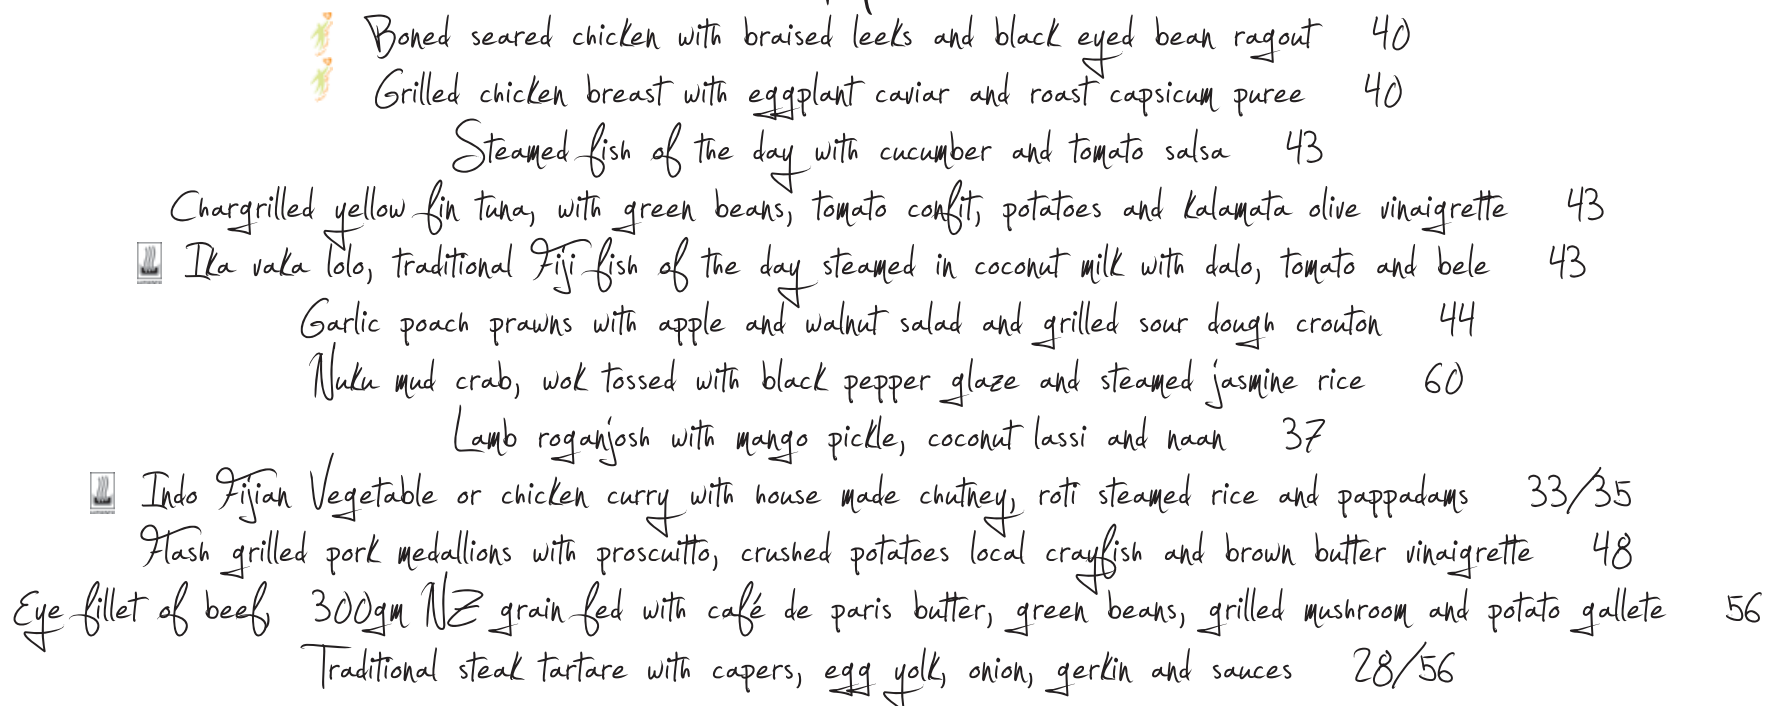 Boned seared chicken with braised leeks and black eyed bean ragout 40
Grilled chicken breast with eggplant caviar and roast capsicum puree 40
Steamed fish of the day with cucumber and tomato salsa 43
Chargrilled yellow fin tuna, with green beans, tomato confit, potatoes and kalamata olive vinaigrette 43
Ika vaka lolo, traditional Fiji fish of the day steamed in coconut milk with dalo, tomato and bele 43
Garlic poach prawns with apple and walnut salad and grilled sour dough crouton 44
Nuku mud crab, wok tossed with black pepper glaze and steamed jasmine rice 60
Lamb roganjosh with mango pickle, coconut lassi and naan 37
Indo Fijian Vegetable or chicken curry with house made chutney, roti steamed rice and pappadams 33/35
Flash grilled pork medallions with proscuitto, crushed potatoes local crayfish and brown butter vinaigrette 48
Eye fillet of beef, 300gm NZ grain fed with café de paris butter, green beans, grilled mushroom and potato gallete 56
Traditional steak tartare with capers, egg yolk, onion, gerkin and sauces 28/56